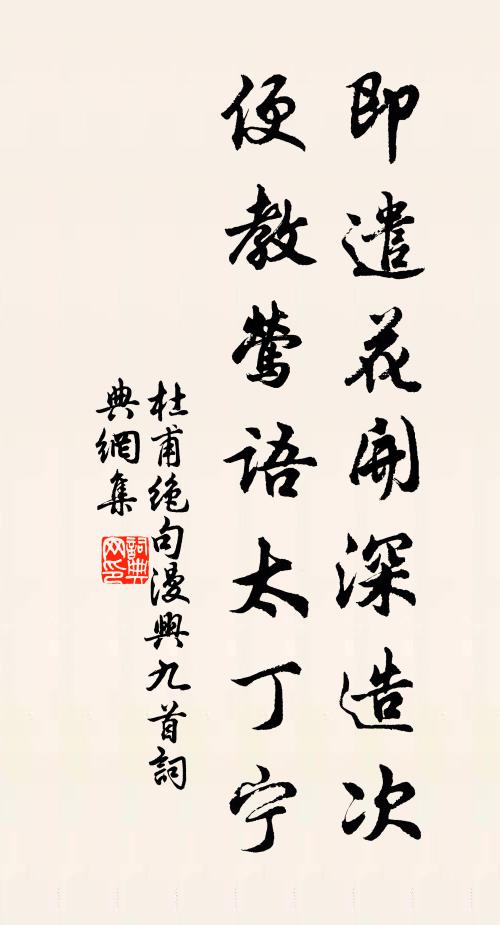 即遣花開深造次
便教鶯语太丁宁
杜甫絶句漫興九首詞
典網集
詞典网印